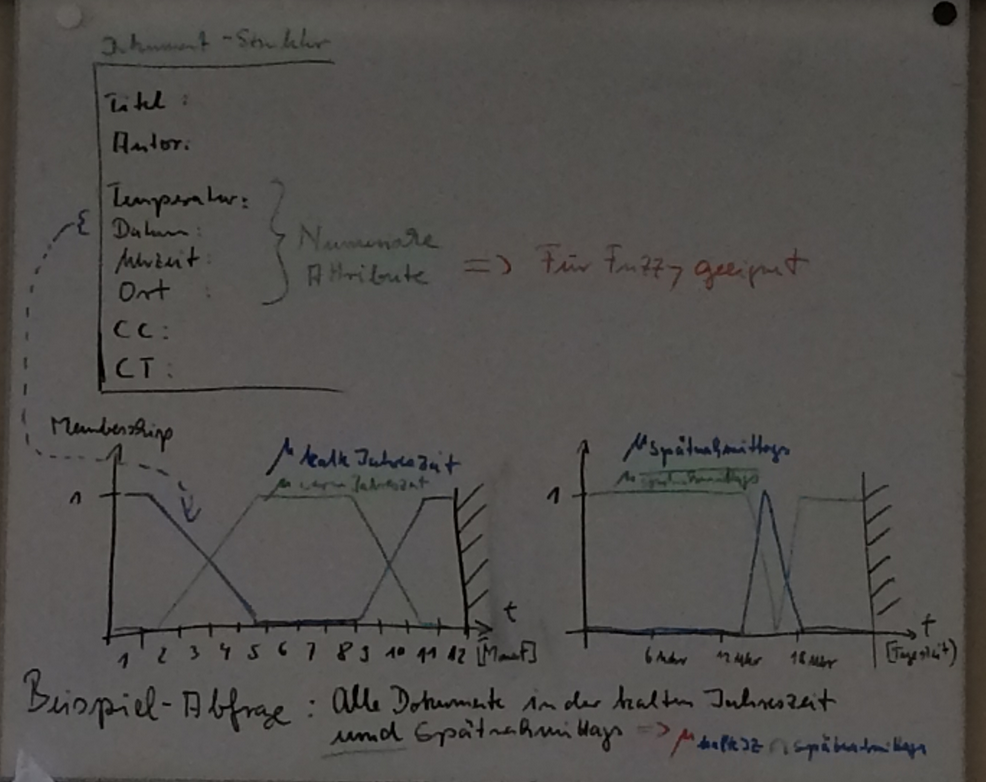 Dokument-Struktur
Titel :
Autor:
Temperatur:
Datum:
Uhrzeit:
Ort :
CC:
CT:
Numerische
Attribute
=> Für Fuzzy geeignet
Membership
μ kalte Jahreszeit
μ warme Jahreszeit
1
t
1 2 3 4 5 6 7 8 9 10 11 12 [Monat]
μ spätnachmittags
μ spätnachmittags
1
t
6 Uhr 12 Uhr 18 Uhr [Tageszeit]
Beispiel-Abfrage : Alle Dokumente in der kalten Jahreszeit
und Spätnachmittags => μ kalte JZ ∩ spätnachmittags